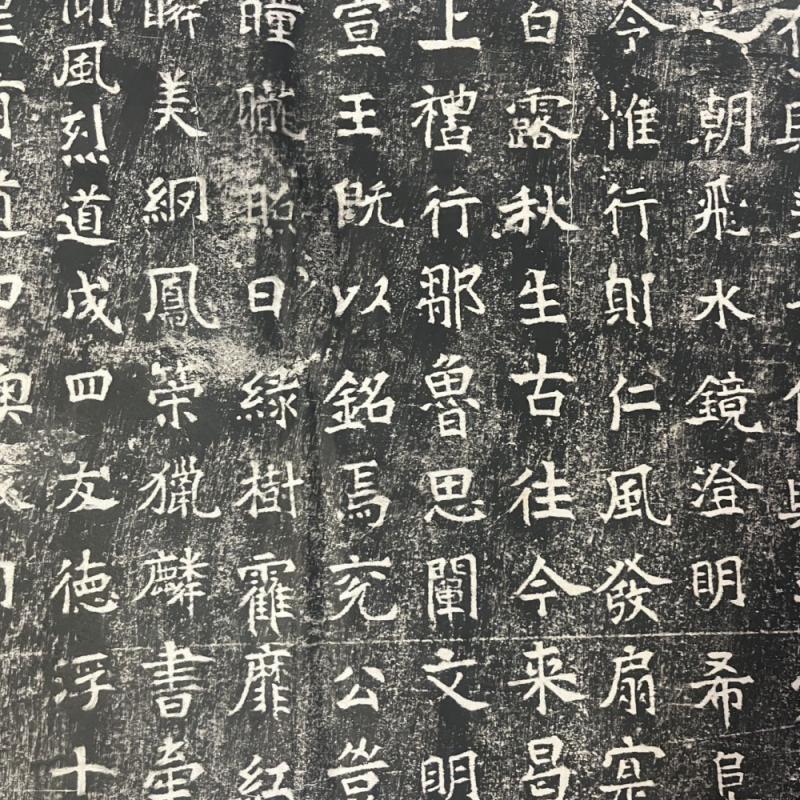 之朝飛水鏡澄明希
令惟行射仁風發扇寘
白露秋生古往今来昌
上禮行鄒魯思闡文明
宣王既以銘焉兖公豈
曈曨照日緑樹靃靡紅
瞬美絅鳳策獵麟書牽
風烈道成四友德浮十